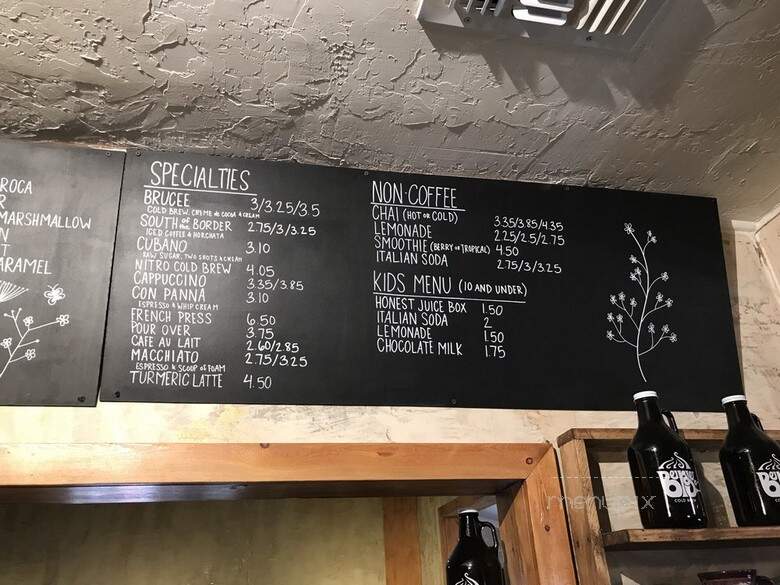 ROCA
R
MARSHMALLOW
N
T
ARAMEL
SPECIALTIES
BRUCEE 3/3.25/3.5
COLD BREW, CREME de COCOA & CREAM
SOUTH of the BORDER 2.75/3/3.25
ICED COFFEE & HORCHATA
CUBANO 3.10
RAW SUGAR, TWO SHOTS & CREAM
NITRO COLD BREW 4.05
CAPPUCCINO 3.35/3.85
CON PANNA 3.10
ESPRESSO & WHIP CREAM
FRENCH PRESS 6.50
POUR OVER 3.75
CAFE AU LAIT 2.60/2.85
MACCHIATO 2.75/3.25
ESPRESSO & SCOOP OF FOAM
TURMERIC LATTE 4.50
NON-COFFEE
CHAI (HOT OR COLD) 3.35/3.85/4.35
LEMONADE 2.25/2.5/2.75
SMOOTHIE (BERRY or TROPICAL) 4.50
ITALIAN SODA 2.75/3/3.25
KIDS MENU (10 AND UNDER)
HONEST JUICE BOX 1.50
ITALIAN SODA 2
LEMONADE 1.50
CHOCOLATE MILK 1.75
menupix
COLD BREW